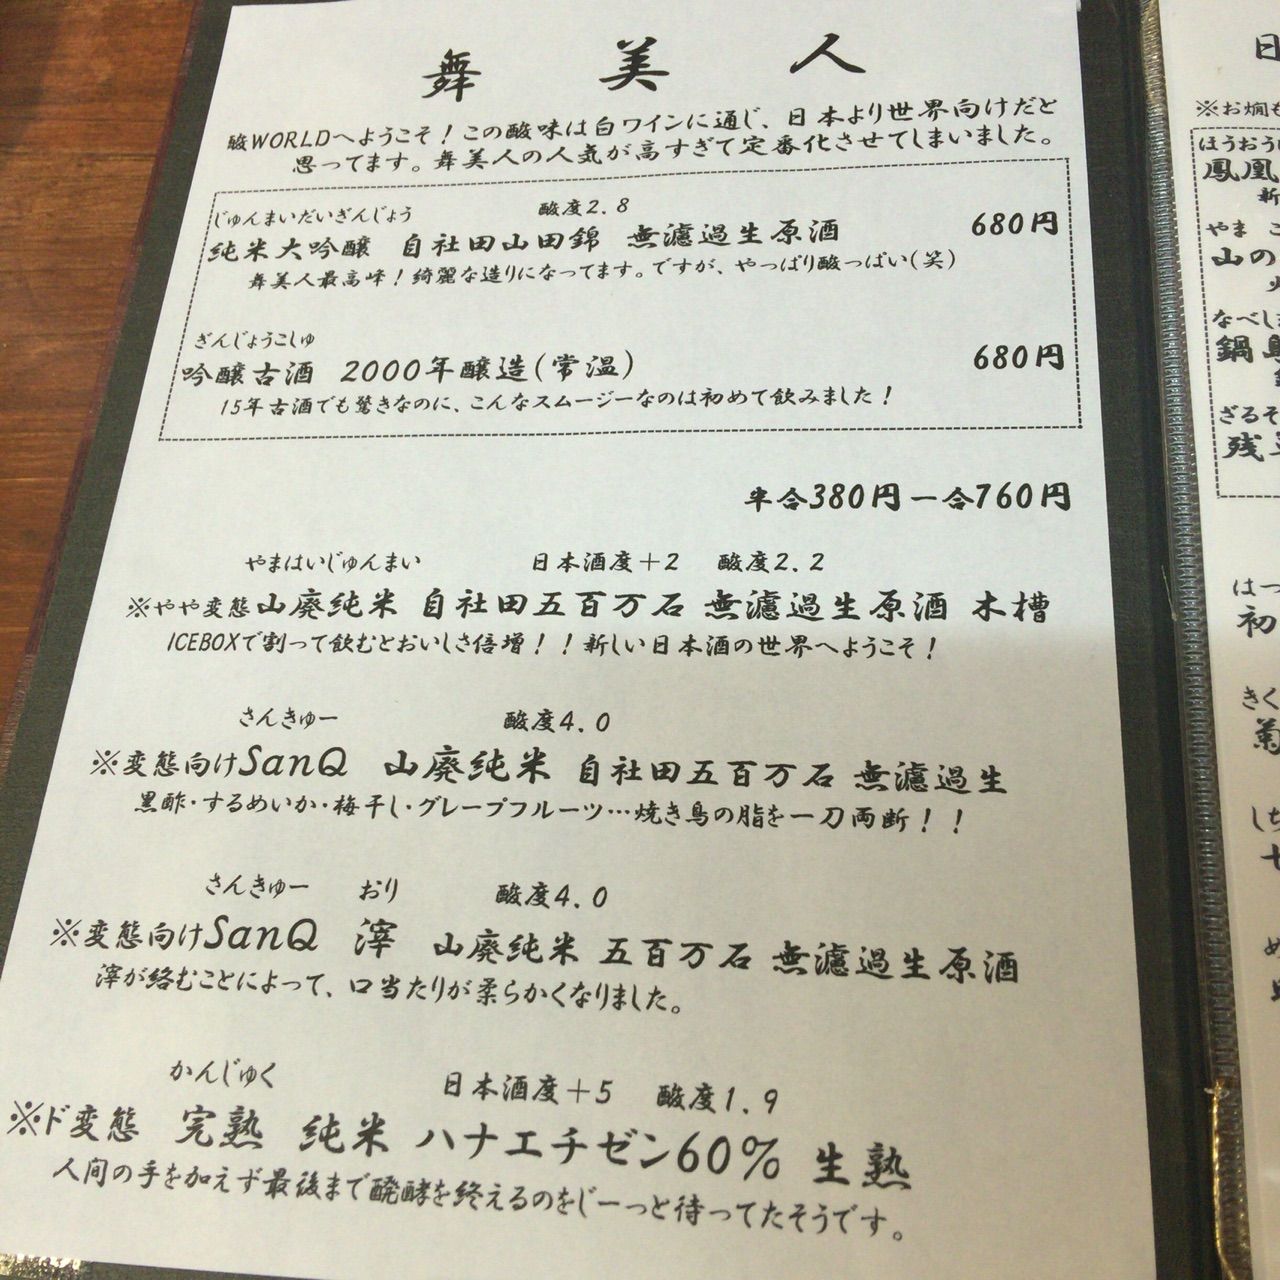 舞美人
酸WORLDへようこそ！この酸味は白ワインに通じ、日本より世界向けだと
思ってます。舞美人の人気が高すぎて定番化させてしまいました。
じゅんまいだいぎんじょう 酸度2.8
純米大吟醸 自社田山田錦 無濾過生原酒 680円
舞美人最高峰！綺麗な造りになってます。ですが、やっぱり酸っぱい(笑)
ぎんじょうこしゅ
吟醸古酒 2000年醸造(常温) 680円
15年古酒でも驚きなのに、こんなスムージーなのは初めて飲みました！
半合380円一合760円
やまはいじゅんまい 日本酒度＋2 酸度2.2
※やや変態山廃純米 自社田五百万石 無濾過生原酒 木槽
ICEBOXで割って飲むとおいしさ倍増！！新しい日本酒の世界へようこそ！
さんきゅー 酸度4.0
※変態向けSanQ 山廃純米 自社田五百万石 無濾過生
黒酢・するめいか・梅干し・グレープフルーツ…焼き鳥の脂を一刀両断！！
さんきゅー おり 酸度4.0
※変態向けSanQ 滓 山廃純米 五百万石 無濾過生原酒
滓が絡むことによって、口当たりが柔らかくなりました。
かんじゅく 日本酒度＋5 酸度1.9
※ド変態 完熟 純米 ハナエチゼン60% 生熟
人間の手を加えず最後まで醗酵を終えるのをじーっと待ってたそうです。
日
※お燗も
ほうおう
鳳凰
新
やま こ
山の
なべし
鍋島
ざるそ
残草
はつ
初
きく
菊
しち
七
め